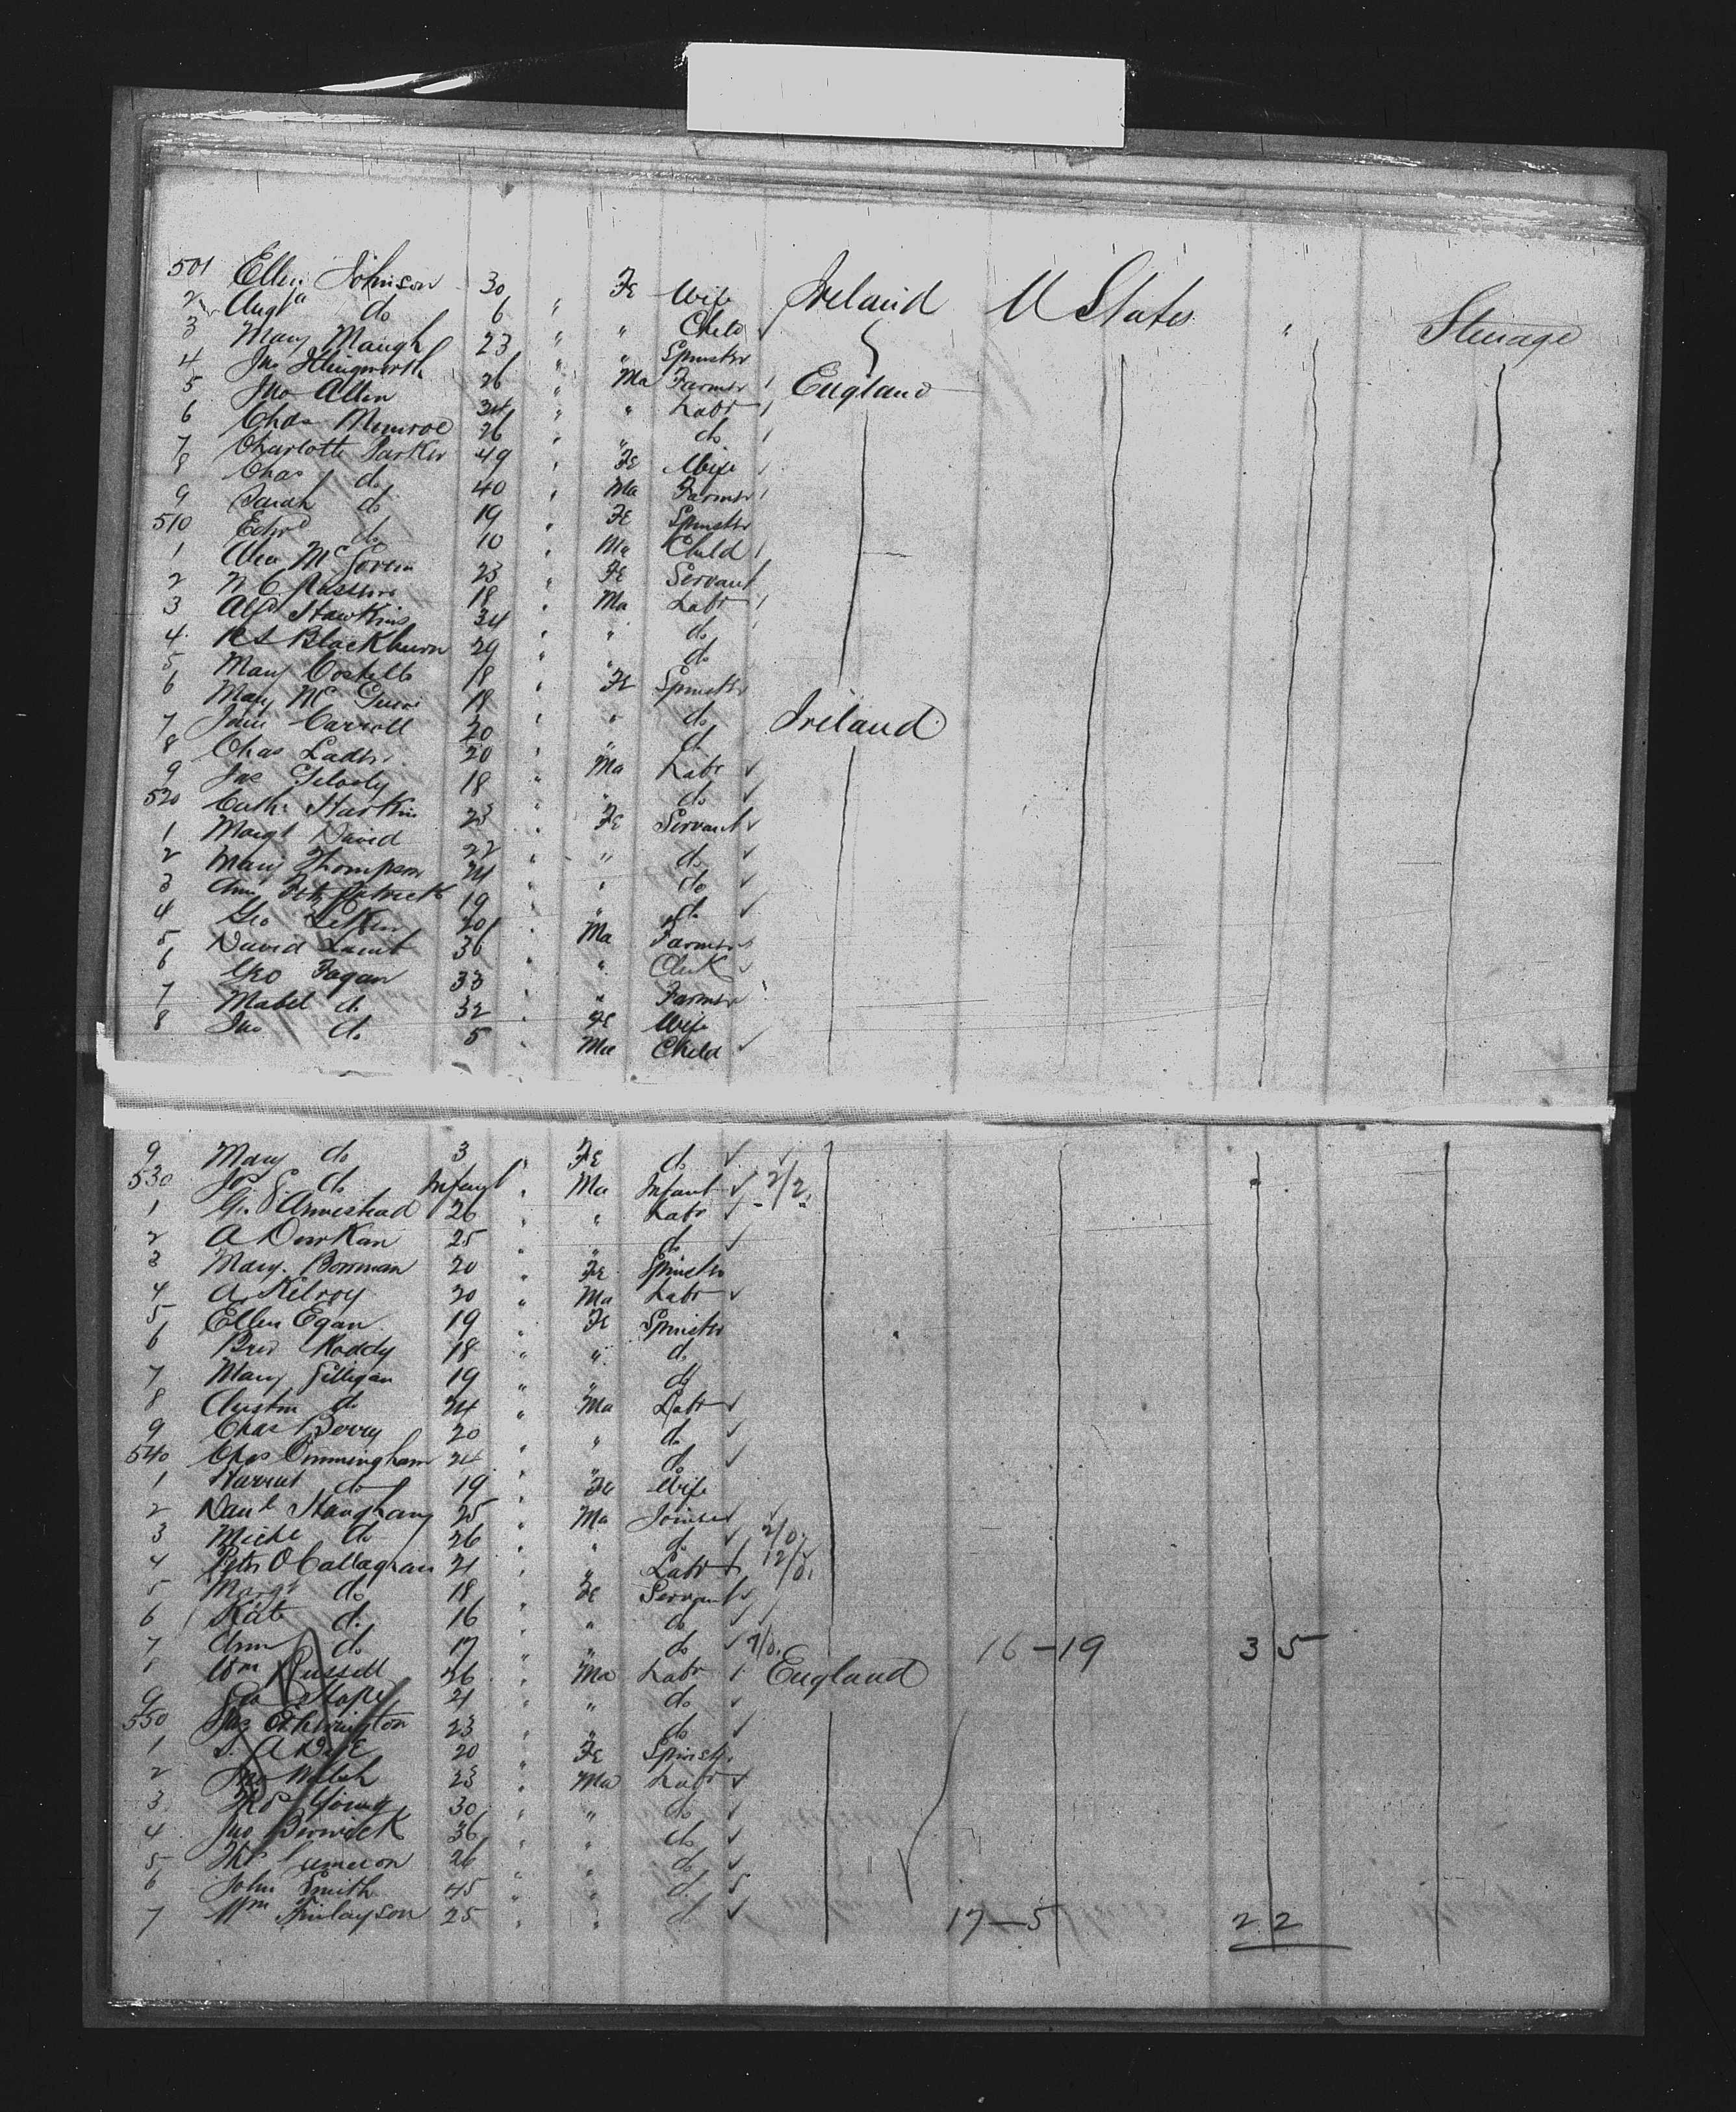 501 Ellen Johnson 30 Fe Wife Ireland U States " Steerage
2 Augta do 6 " " Child
3 Mary Maugh 23 " " Spinster
4 Jno Illingworth 26 " Ma Farmer England
5 Jno Allen 34 " " Labr
6 Chas Munroe 26 " " do
7 Charlotte Parker 49 " Fe Wife
8 Chas do 40 " Ma Farmer
9 Sarah do 19 " Fe Spinster
510 Edwd do 10 " Ma Child
1 23 " Fe Servant
2 18 " Ma Labr
3 Alfd Hawkins 34 " " do
4 Blackburn 29 " " do
5 Mary Costello 18 " Fe Spinster
6 Mary Mc 18 " " do Ireland
7 Jane Carroll 20 " " do
8 Chas 20 " Ma Labr
9 Jas 18 " " do
520 Cath Harkin 23 " Fe Servant
1 Margt David 22 " " do
2 Mary Thompson 24 " " do
3 Ann Fitzpatrick 19 " " do
4 Geo 20 " Ma Farmer
5 David Lamb 36 " " Clerk
6 Geo Fagan 33 " " Farmer
7 Mabel do 32 " Fe Wife
8 Jno do 5 " Ma Child
9 Mary do 3 " Fe do
530 Jos do Infant " Ma Infant 2/2
1 Armistead 26 " " Labr
2 A Durkan 25 " " do
3 Mary Bowman 20 " Fe Spinster
4 A Kilroy 20 " Ma Labr
5 Ellen Egan 19 " Fe Spinster
6 Roddy 18 " " do
7 Mary Gilligan 19 " " do
8 Austin do 24 " Ma Labr
9 Chas Berry 20 " " do
540 Chas Cunningham 24 " " do
1 Harriet do 19 " Fe Wife
2 Danl 25 " Ma Joiner
3 Michl do 26 " " do 2/0
4 Peter O Callaghan 21 " " Labr 12/0
5 Margt do 18 " Fe Servant
6 Kate do 16 " " do
7 Ann do 17 " " do 7/0 16-19 35
8 Wm Russell 26 " Ma Labr England
9 Geo Hope 21 " " do
550 Etherington 23 " " do
1 S. A 20 " Fe Spinstr
2 Jno Walsh 23 " Ma Labr
3 Thos Young 30 " " do
4 Jno Berwick 36 " " do
5 Thos Cameron 26 " " do
6 John Smith 45 " " do
7 Wm Finlayson 25 " " do 17-5 22